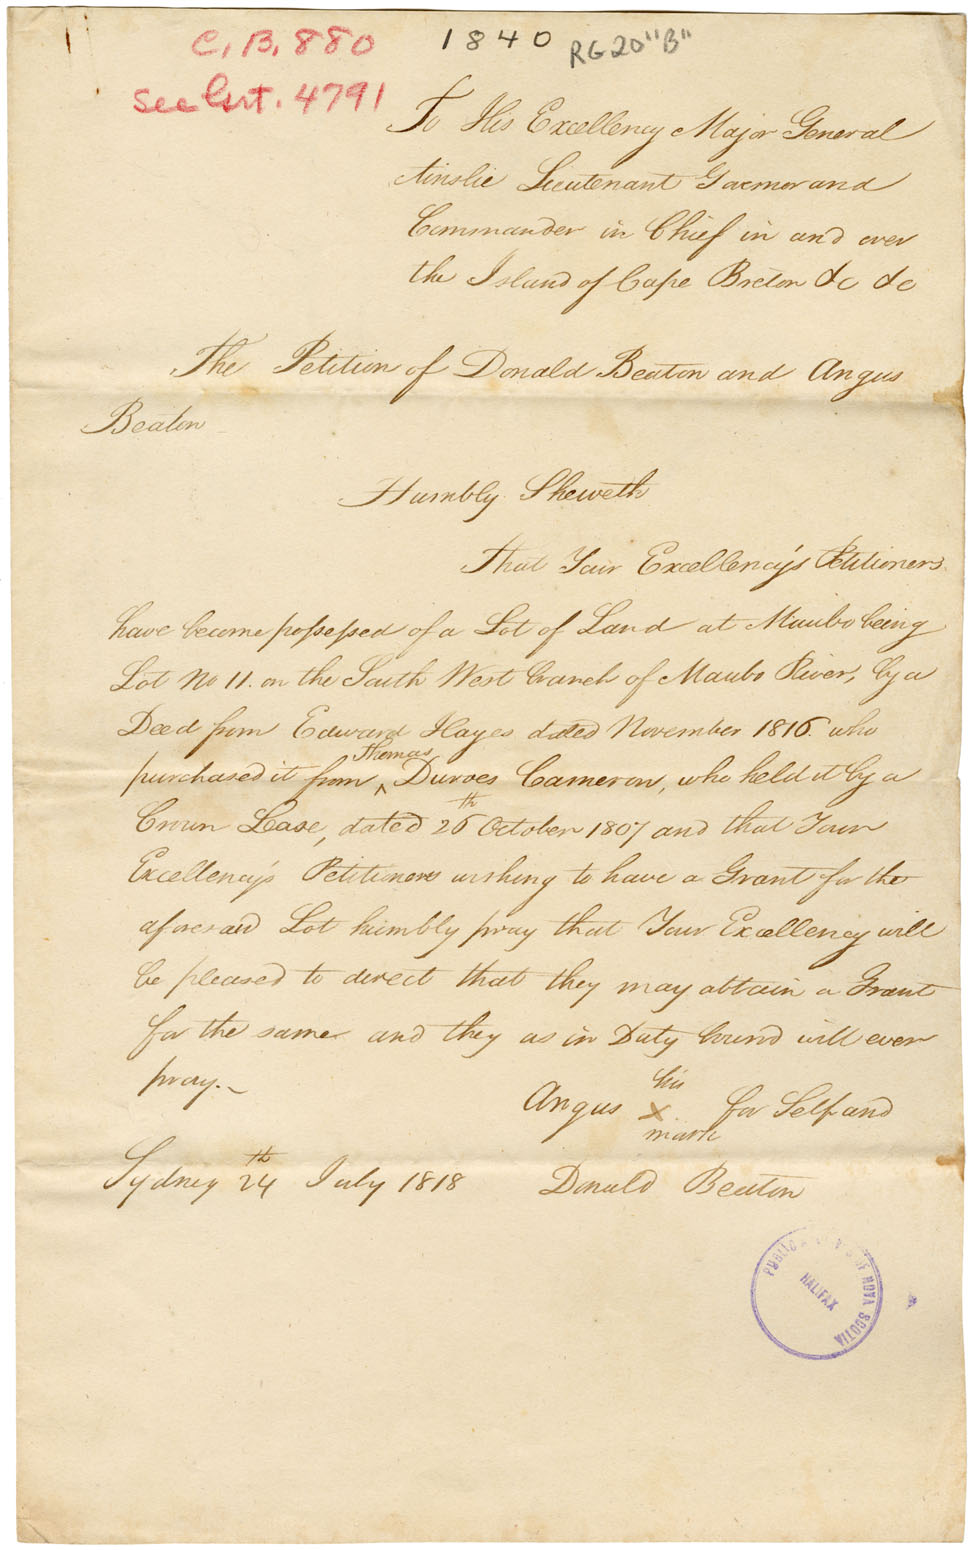 C, B, 880
1840
RG 20 "B"
See Cert. 4791
To His Excellency Major General
Ainslie Lieutenant Governor and
Commander in Chief in and over
the Island of Cape Breton &c &c
The Petition of Donald Beaton and Angus
Beaton
Humbly Sheweth
That Your Excellency's Petitioners
have become possessed of a Lot of Land at Maubo being
Lot No 11. on the South West branch of Maubo River, by a
Deed from Edward Hayes dated November 1816. who
Thomas
purchased it from ^ Cameron, who held it by a
Crown Lease, dated 26th October 1807 and that Your
Excellency's Petitioners wishing to have a Grant for the
aforesaid Lot humbly pray that Your Excellency will
be pleased to direct that they may obtain a Grant
for the same and they as in Duty bound will ever
pray._
his
Angus X for Self and
mark
Sydney 24th July 1818 Donald Beaton
PUBLIC OF NOVA SCOTIA
HALIFAX